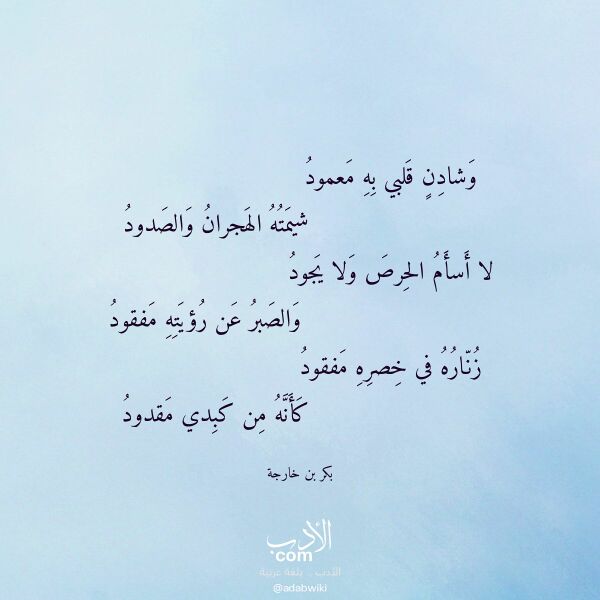 وَشادِنٍ قَلبي بِهِ مَعمودُ
شيمَتُهُ الهَجرانُ وَالصَدودُ
لا أَسأَمُ الحِرصَ وَلا يَجودُ
وَالصَبرُ عَن رُؤيَتِهِ مَفقودُ
زُنّارُهُ في خِصرِهِ مَفقودُ
كَأَنَّهُ مِن كَبِدي مَقدودُ
بكر بن خارجة
الأدب
com
الأدب .. بلغة عربية
@adabwiki